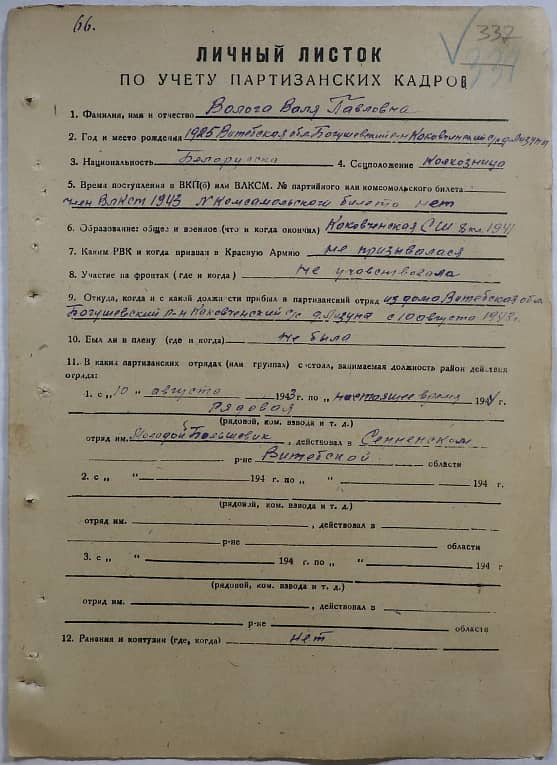 66.
337
334
ЛИЧНЫЙ ЛИСТОК
ПО УЧЕТУ ПАРТИЗАНСКИХ КАДРОВ
1. Фамилия, имя и отчество Волога Валя Павловна
2. Год и место рождения 1925 Витебская обл. Богушевский р-н Каковчинский с/с д. Лозуны
3. Национальность Белоруска 4. Соцположение Колхозница
5. Время поступления в ВКП(б) или ВЛКСМ. № партийного или комсомольского билета
член ВЛКСМ 1943 N Комсамольского билета нет
6. Образование: общее и военное (что и когда окончил) Каковченская СШ 8 кл. 1941
7. Каким РВК и когда призван в Красную Армию не призывалася
8. Участие на фронтах (где и когда) не учавствовала
9. Откуда, когда и с какой должности прибыл в партизанский отряд из дома Витебская обл.
Богушевский р-н Каковченский с/с д. Лозуны с 10 августа 1943 г.
10. Был ли в плену (где и когда) не была
11. В каких партизанских отрядах (или группах) состоял, занимаемая должность район действия
отряда:
1. с „10 " августа 1943 г. по „ настоящие время 1944 г.
Рядовая
(рядовой, ком. взвода и т. д.)
отряд им. Молодой Большевик, действовал в Сенненском
р-не Витебской области
2. с „ " 194 г. по „ " 194 г.
(рядовой, ком. взвода и т. д.)
отряд им. , действовал в
р-не области
3. с „ " 194 г. по „ " 194 г
(рядовой, ком. взвода и т. д.)
отряд им. , действовал в
р-не области
12. Ранения и контузии (где, когда) нет